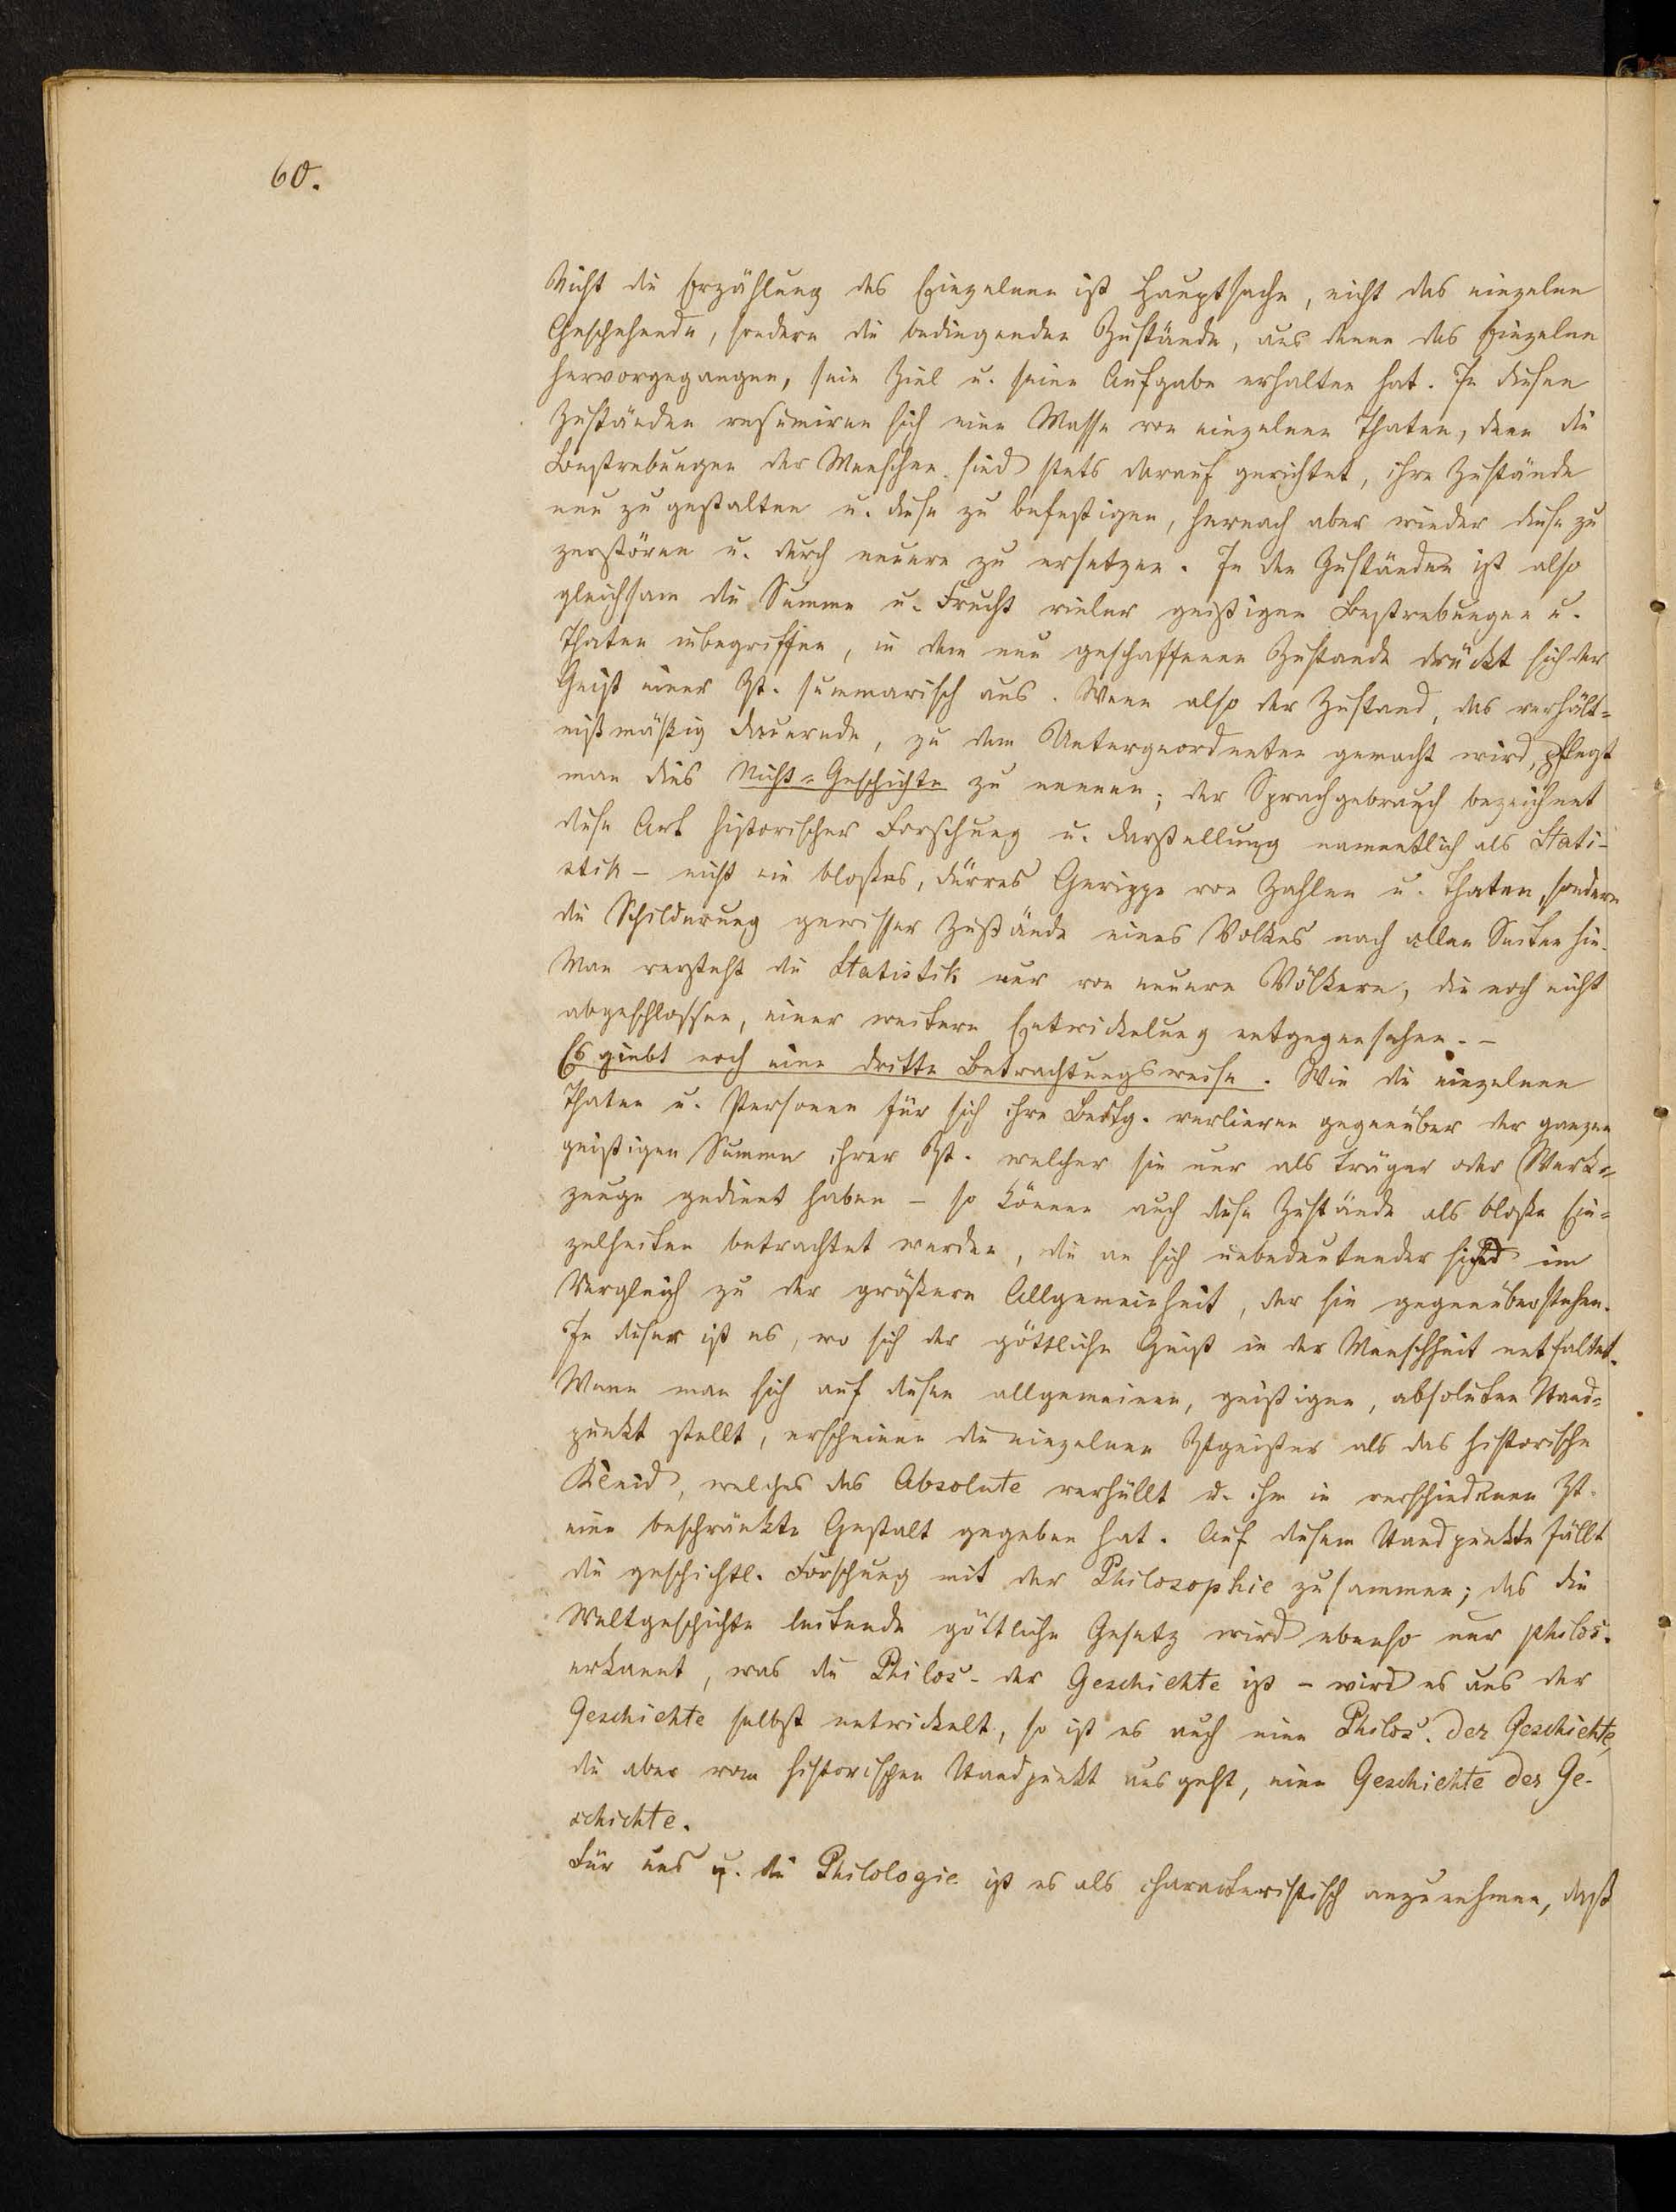 60.
Nicht die Erzählung des Einzelnen ist Hauptsache, nicht das einzelne
Geschehende, sondern die bedingenden Zustände, aus denen das Einzelne
hervorgegangen, sein Ziel u. seine Aufgabe erhalten hat. In diesen
Zuständen resumiren sich eine Masse von einzelnen Thaten, denn die
Bestrebungen der Menschen sind stets darauf gerichtet, ihre Zustände
neu zu gestalten u. diese zu befestigen, hernach aber wieder diese zu
zerstören u. durch neuere zu ersetzen. In den Zuständen ist also
gleichsam die Summe u. Frucht vieler geistigen Bestrebungen u.
Thaten inbegriffen, in dem neu geschaffenen Zustande drückt sich der
Geist einer Zt. summarisch aus. Wenn also der Zustand, das verhält=
nißmäßig Dauernde, zu dem Untergeordneten gemacht wird, pflegt
man dies Nicht=Geschichte zu nennen; der Sprachgebrauch bezeichnet
diese Art historischer Forschung u. Darstellung namentlich als Stati-
stik – nicht ein bloßes, dürres Gerippe von Zahlen u. Thaten, sondern
die Schilderung gewisser Zustände eines Volkes nach allen Seiten hin.
Man versteht die Statistik nur von neuern Völkern, die noch nicht
abgeschlossen, einer weitern Entwickelung entgegensehen. –
Es giebt noch eine dritte Betrachtungsweise. Wie die einzelnen
Thaten u. Personen für sich ihre Bedtg. verlieren gegenüber der ganzen
geistigen Summe ihrer Zt. welcher sie nur als Träger oder Werk=
zeuge gedient haben – so können auch diese Zustände als bloße Ein=
zelheiten betrachtet werden, die an sich unbedeutender sind im
Vergleich zu der größern Allgemeinheit, der sie gegenüberstehen.
In dieser ist es, wo sich der göttliche Geist in der Menschheit entfaltet.
Wenn man sich auf diesen allgemeinen, geistigen, absoluten Stand=
punkt stellt, erscheinen die einzelnen Ztgeister als das historische
Kleid, welches das Absolute verhüllt u. ihm in verschiedenen Zt.
eine beschränkte Gestalt gegeben hat. Auf diesem Standpunkte fällt
die geschichtl. Forschung mit der Philosophie zusammen; das die
Weltgeschichte leitende göttliche Gesetz wird ebenso nur philos.
erkannt, was die Philos. der Geschichte ist – wird es aus der
Geschichte selbst entwickelt, so ist es auch eine Philos. der Geschichte,
die aber vom historischen Standpunkt ausgeht, eine Geschichte der Ge-
schichte.
Für uns u. die Philologie ist es als characteristisch anzunehmen, daß